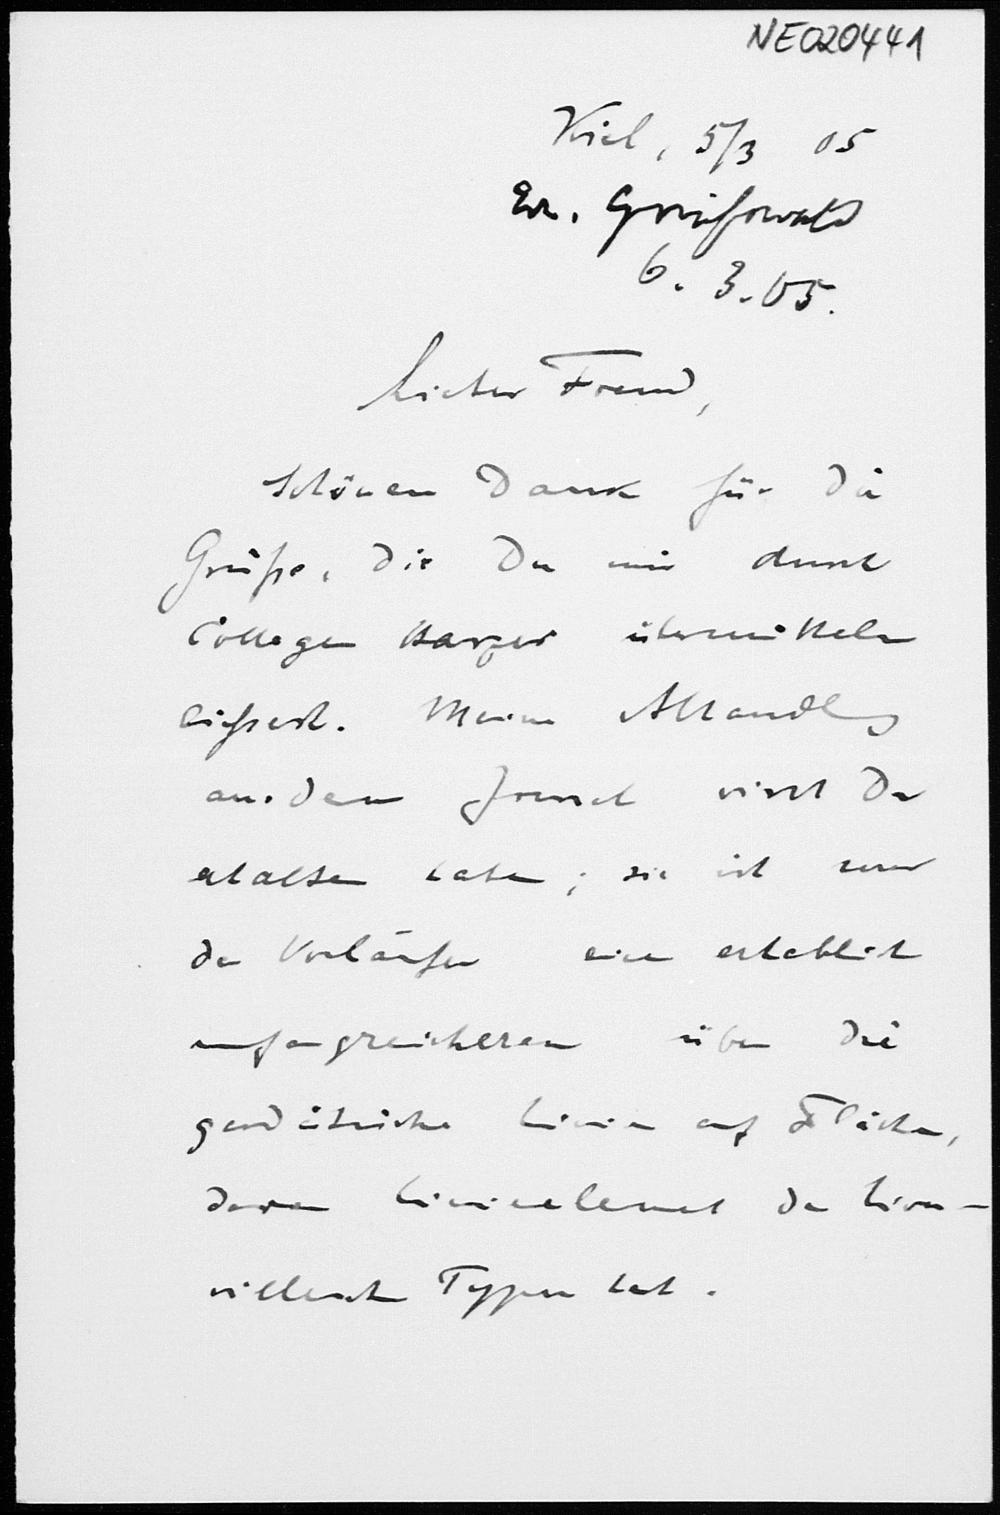 NE020441
Kiel, 5/3 05
Er. Greifswald
6. 3. 05.
Lieber Freund,
Schönen Dank für die
Grüße, die Du mir durch
Collegen Harzer übermitteln
ließest. Meine Abhandlg
aus dem Journal wirst Du
erhalten haben; sie ist nur
der Vorläufer einer erheblich
umfangreicheren über die
geodätischen Linien auf Flächen,
deren Linienelement den Liou-
villeschen Typen hat.